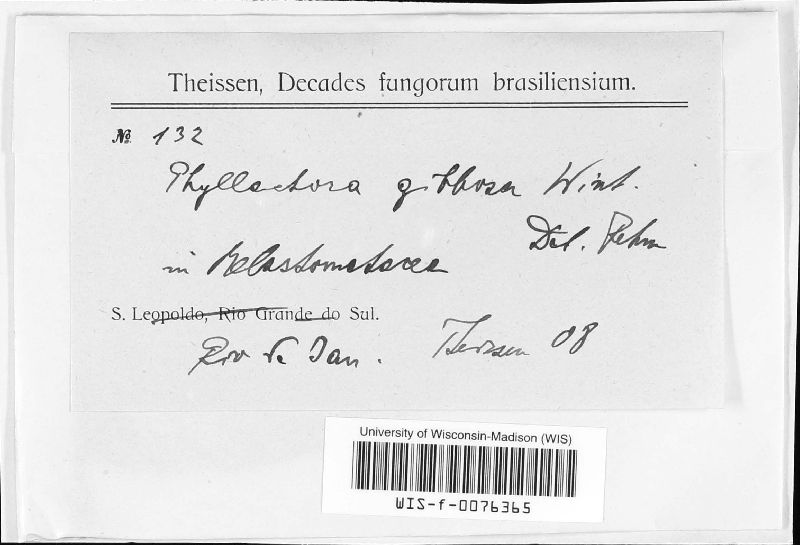 Theissen, Decades fungorum brasiliensium.
№ 132
Phyllachora gibbosa Wint.
Det. Rehm
in Melastomatacea
S. Leopoldo, Rio Grande do Sul.
Rio de Jan. Theissen 08
University of Wisconsin-Madison (WIS)
WIS-f-0076365